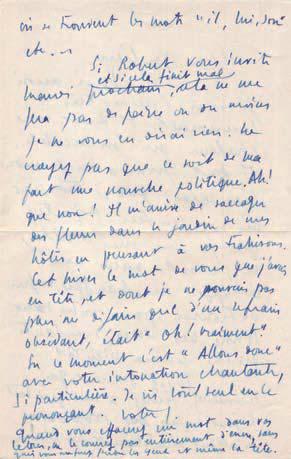 où se trouvent les mots "il, lui, son"
etc..
Si Robert vous invite
et si cela finit mal
mardi prochain cela ne me
fera pas de peine ou du moins
je ne vous en dirai rien. Ne
croyez pas que ce soit de ma
part une nouvelle politique. Ah!
que non! Il m'arrive de saccager
des fleurs dans le jardin de mes
hôtes en pensant à vos trahisons.
Cet hiver le mot de vous que j'avais
en tête, et dont je ne pouvais pas
plus me défaire que d'un refrain
obsédant, était "Oh! vraiment".
En ce moment c'est "Allons donc"
avec votre intonation chantante,
si particulière. Je ris tout seul en le
prononçant. Votre
Quand vous effacez un mot dans vos
lettres, ne le couvrez pas entièrement d'encre, sans